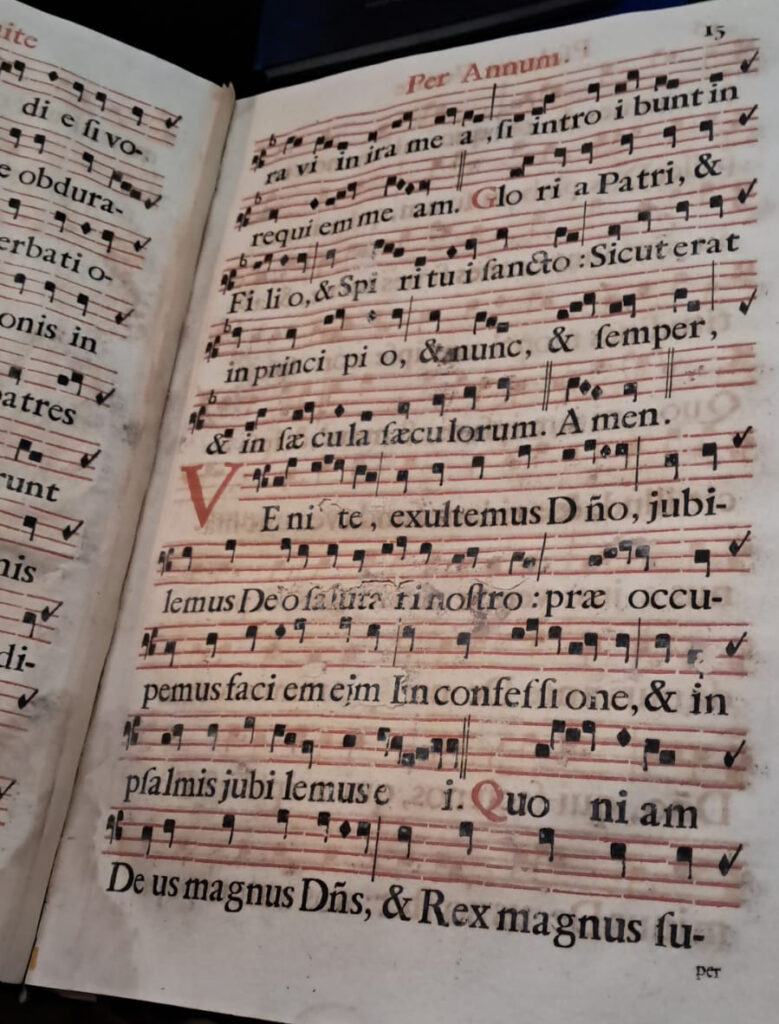 ite
di e ſi vo-
e obdura-
erbati o-
onis in
atres
runt
nis
di-
15
Per Annum.
ra vi in ira me a, ſi intro i bunt in
requi em me am. Glo ri a Patri, &
Fi li o, & Spi ri tu i ſancto : Sicut erat
in princi pi o, & nunc, & ſemper,
& in ſæ cu la ſæcu lorum. A men.
VE ni te, exultemus D ño, jubi-
lemus Deo ſaluta ri noſtro : præ occu-
pemus faci em ejm In confeſſi one, & in
pſalmis jubi lemus e i. Quo ni am
De us magnus Dñs, & Rex magnus ſu-
per